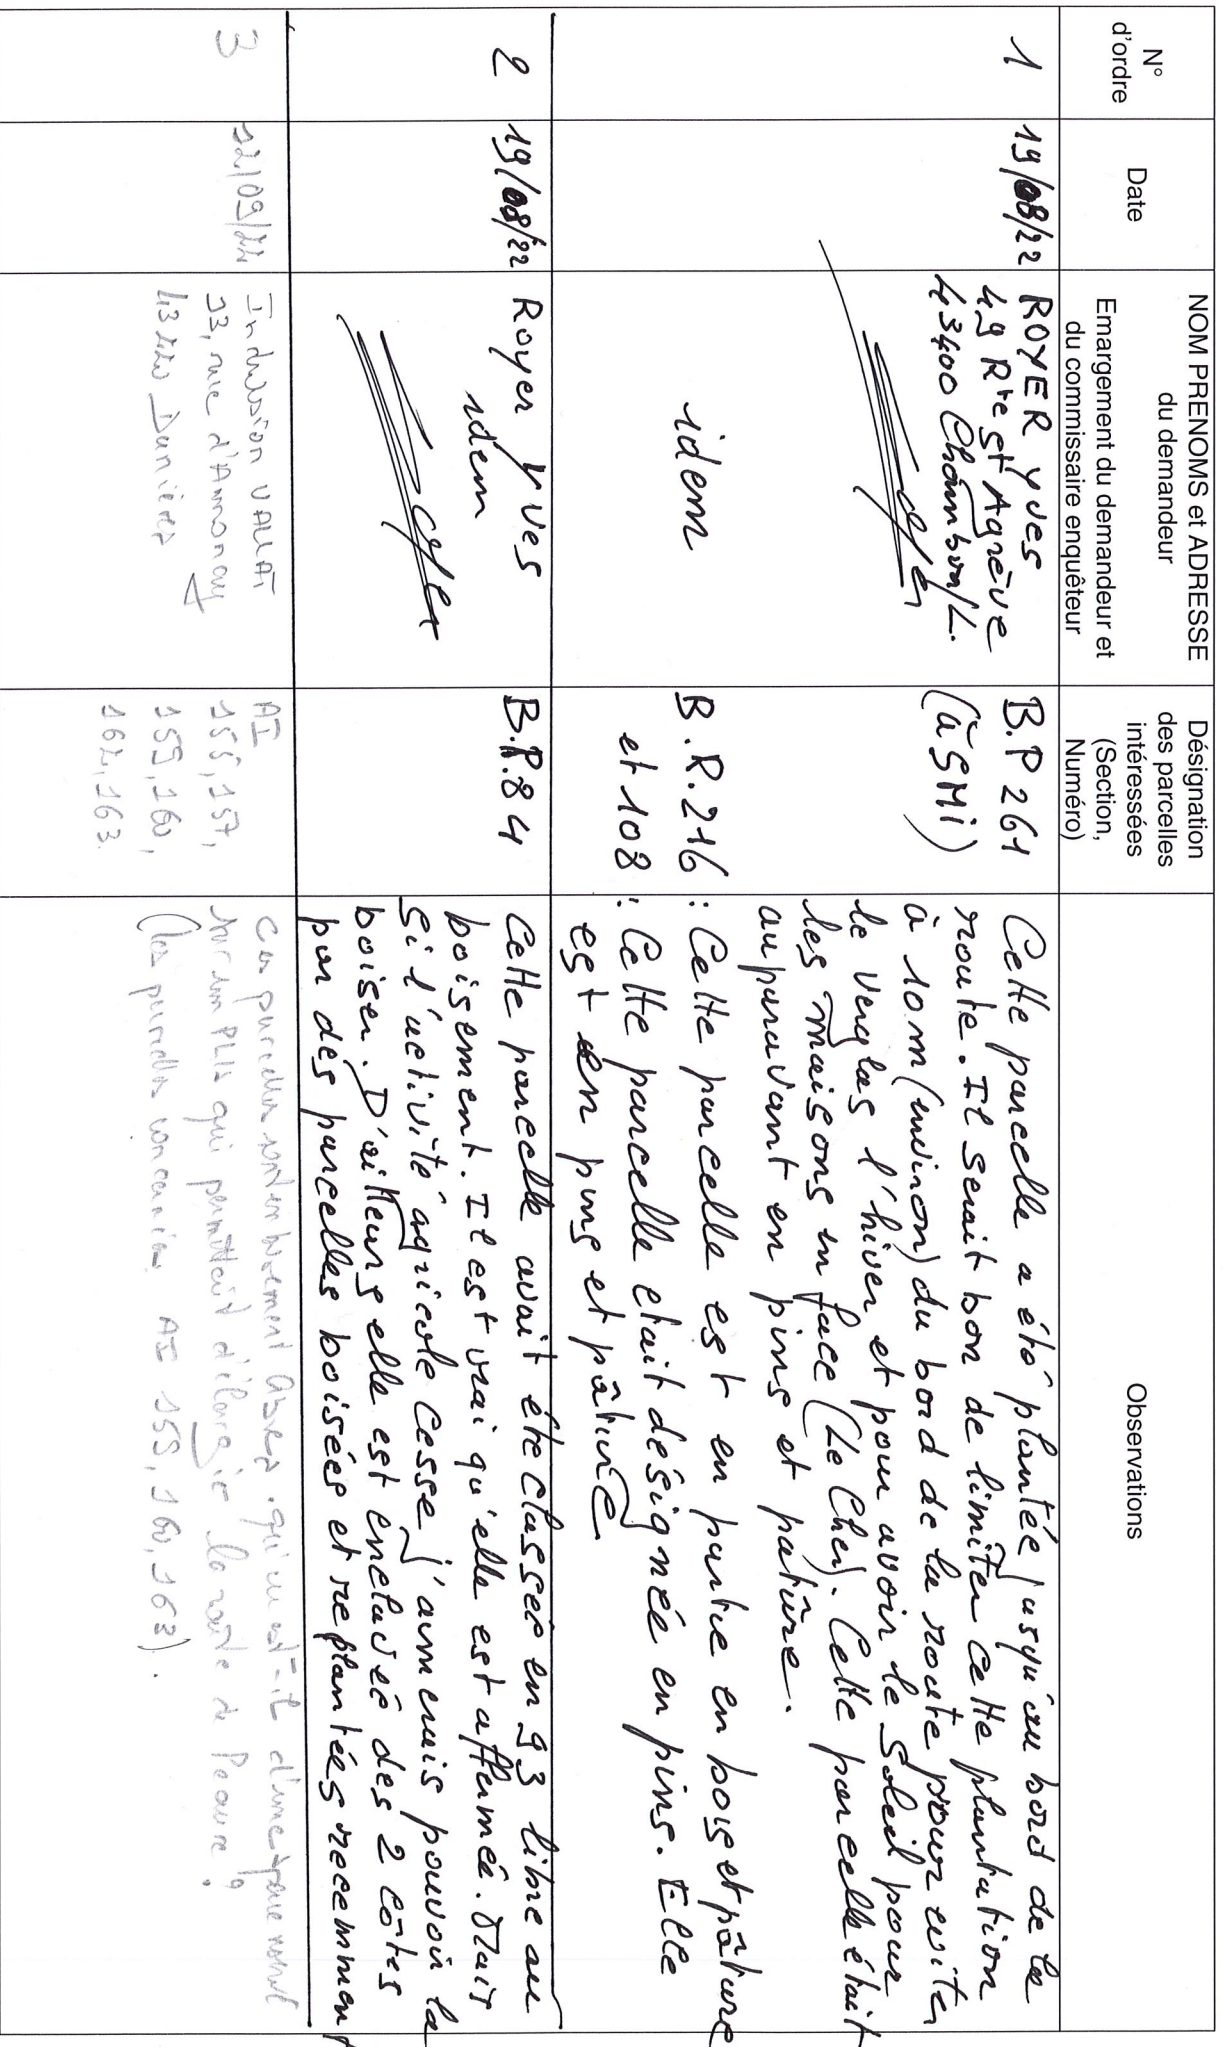 N°
d'ordre
Date
NOM PRENOMS et ADRESSE
du demandeur
Emargement du demandeur et
du commissaire enquêteur
Désignation
des parcelles
intéressées
(Section,
Numéro)
Observations
1
19/08/22
ROYER Yves
49 Rte St Agrève
43400 Chambon/L.
B.P 261
(à SMi)
Cette parcelle a été plantée jusqu'au bord de la
route. Il serait bon de limiter cette plantation
à 10m (environ) du bord de la route pour éviter
le verglas l'hiver et pour avoir le soleil pour
les maisons en face (Le Cher). Cette parcelle était
auparavant en pins et patûre.
idem
B.R.216
: Cette parcelle est en partie en bois et pâture
et 108
: Cette parcelle était désignée en pins. Elle
est en pins et pâture
2
19/08/22
Royer Yves
idem
B.R.84
Cette parcelle avait été classée en 93 libre au
boisement. Il est vrai qu'elle est affermée. Mais
si l'activité agricole cesse j'aimerais pouvoir la
boiser. D'ailleurs elle est enclavée des 2 côtés
par des parcelles boisées et replantées recemment
3
12/09/22
Indivision VALLAT
33, rue d'Annonay
43220 Dunières
AI
155, 157,
159, 160,
162, 163.
Ces parcelles sont en boisement qu'en est-il d'une
sur un qui permettait d'élargir la route de Peaure ?
(les parcelles concernées AI 159, 160, 163).